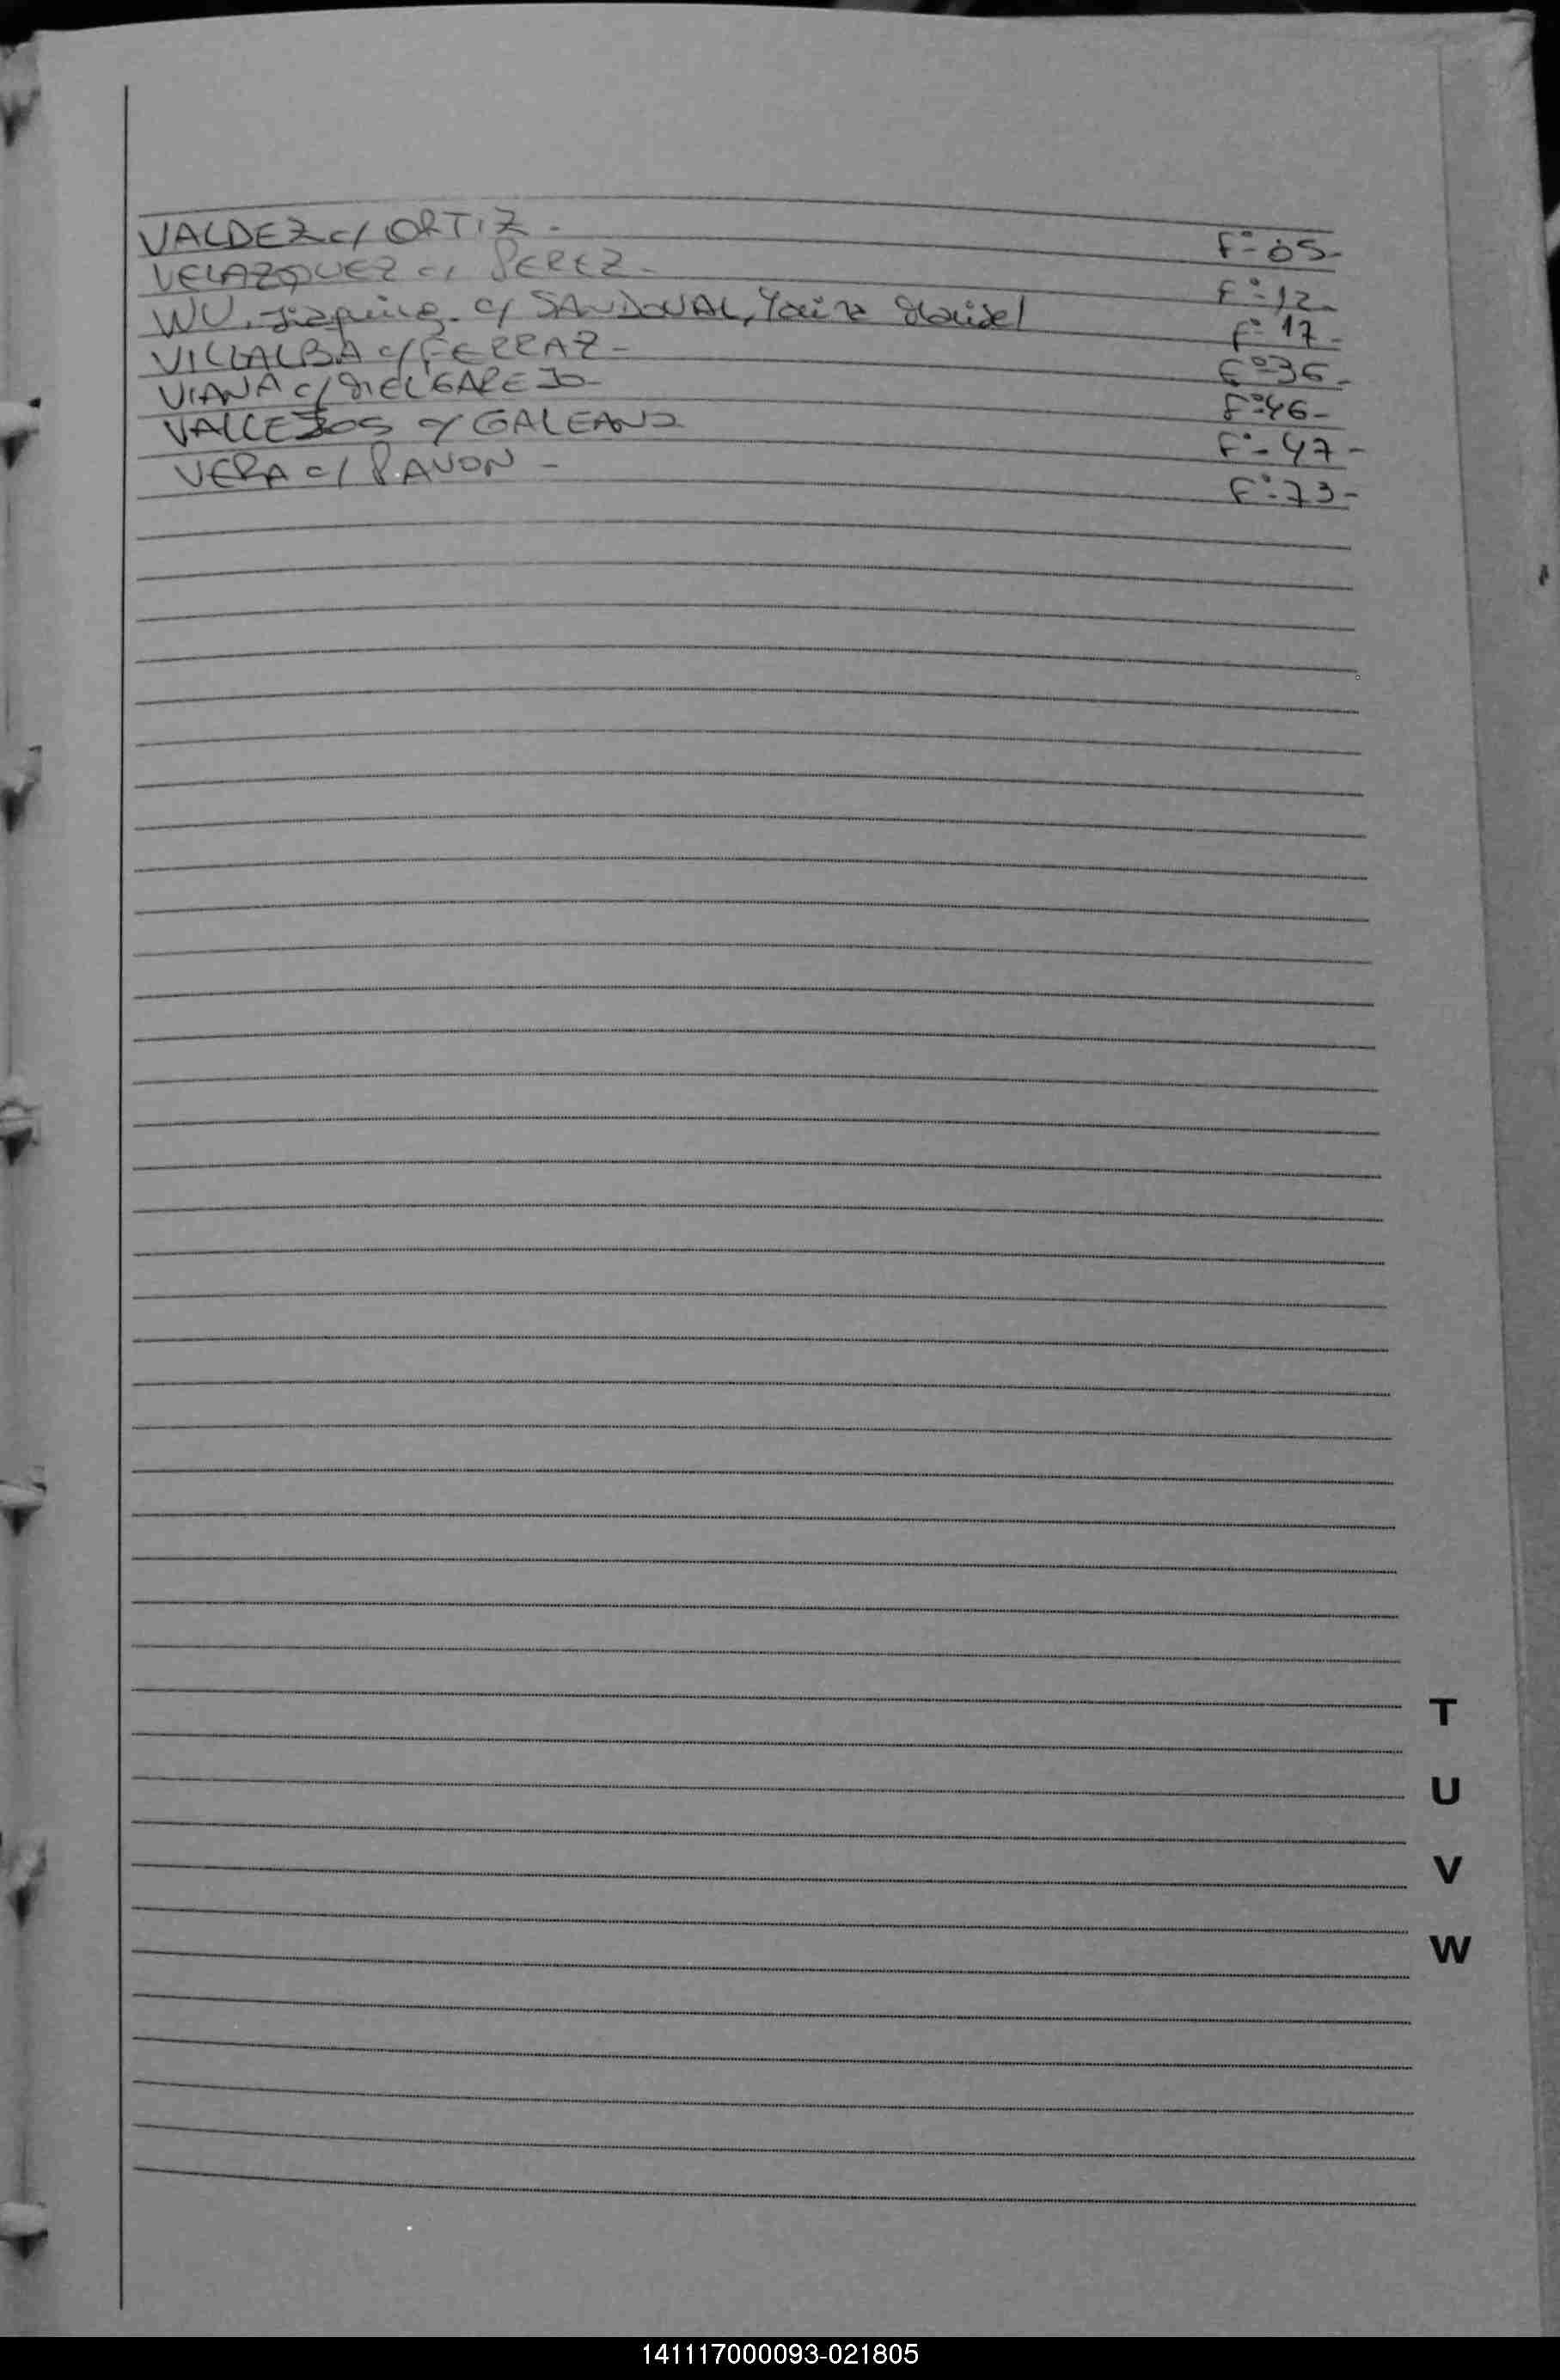 VALDEZ c/ ORTIZ - Fº- 05-
VELAZQUEZ c/ PEREZ - Fº-12-
WU, c/ SANDOVAL, Fº- 17-
VILLALBA c/ FERRAZ - Fº36-
VIANA c/ MELGAREJO - Fº46-
VALLEJOS c/ GALEANO Fº- 47-
VERA c/ PAVON - Fº-73-
T
U
V
W
141117000093-021805